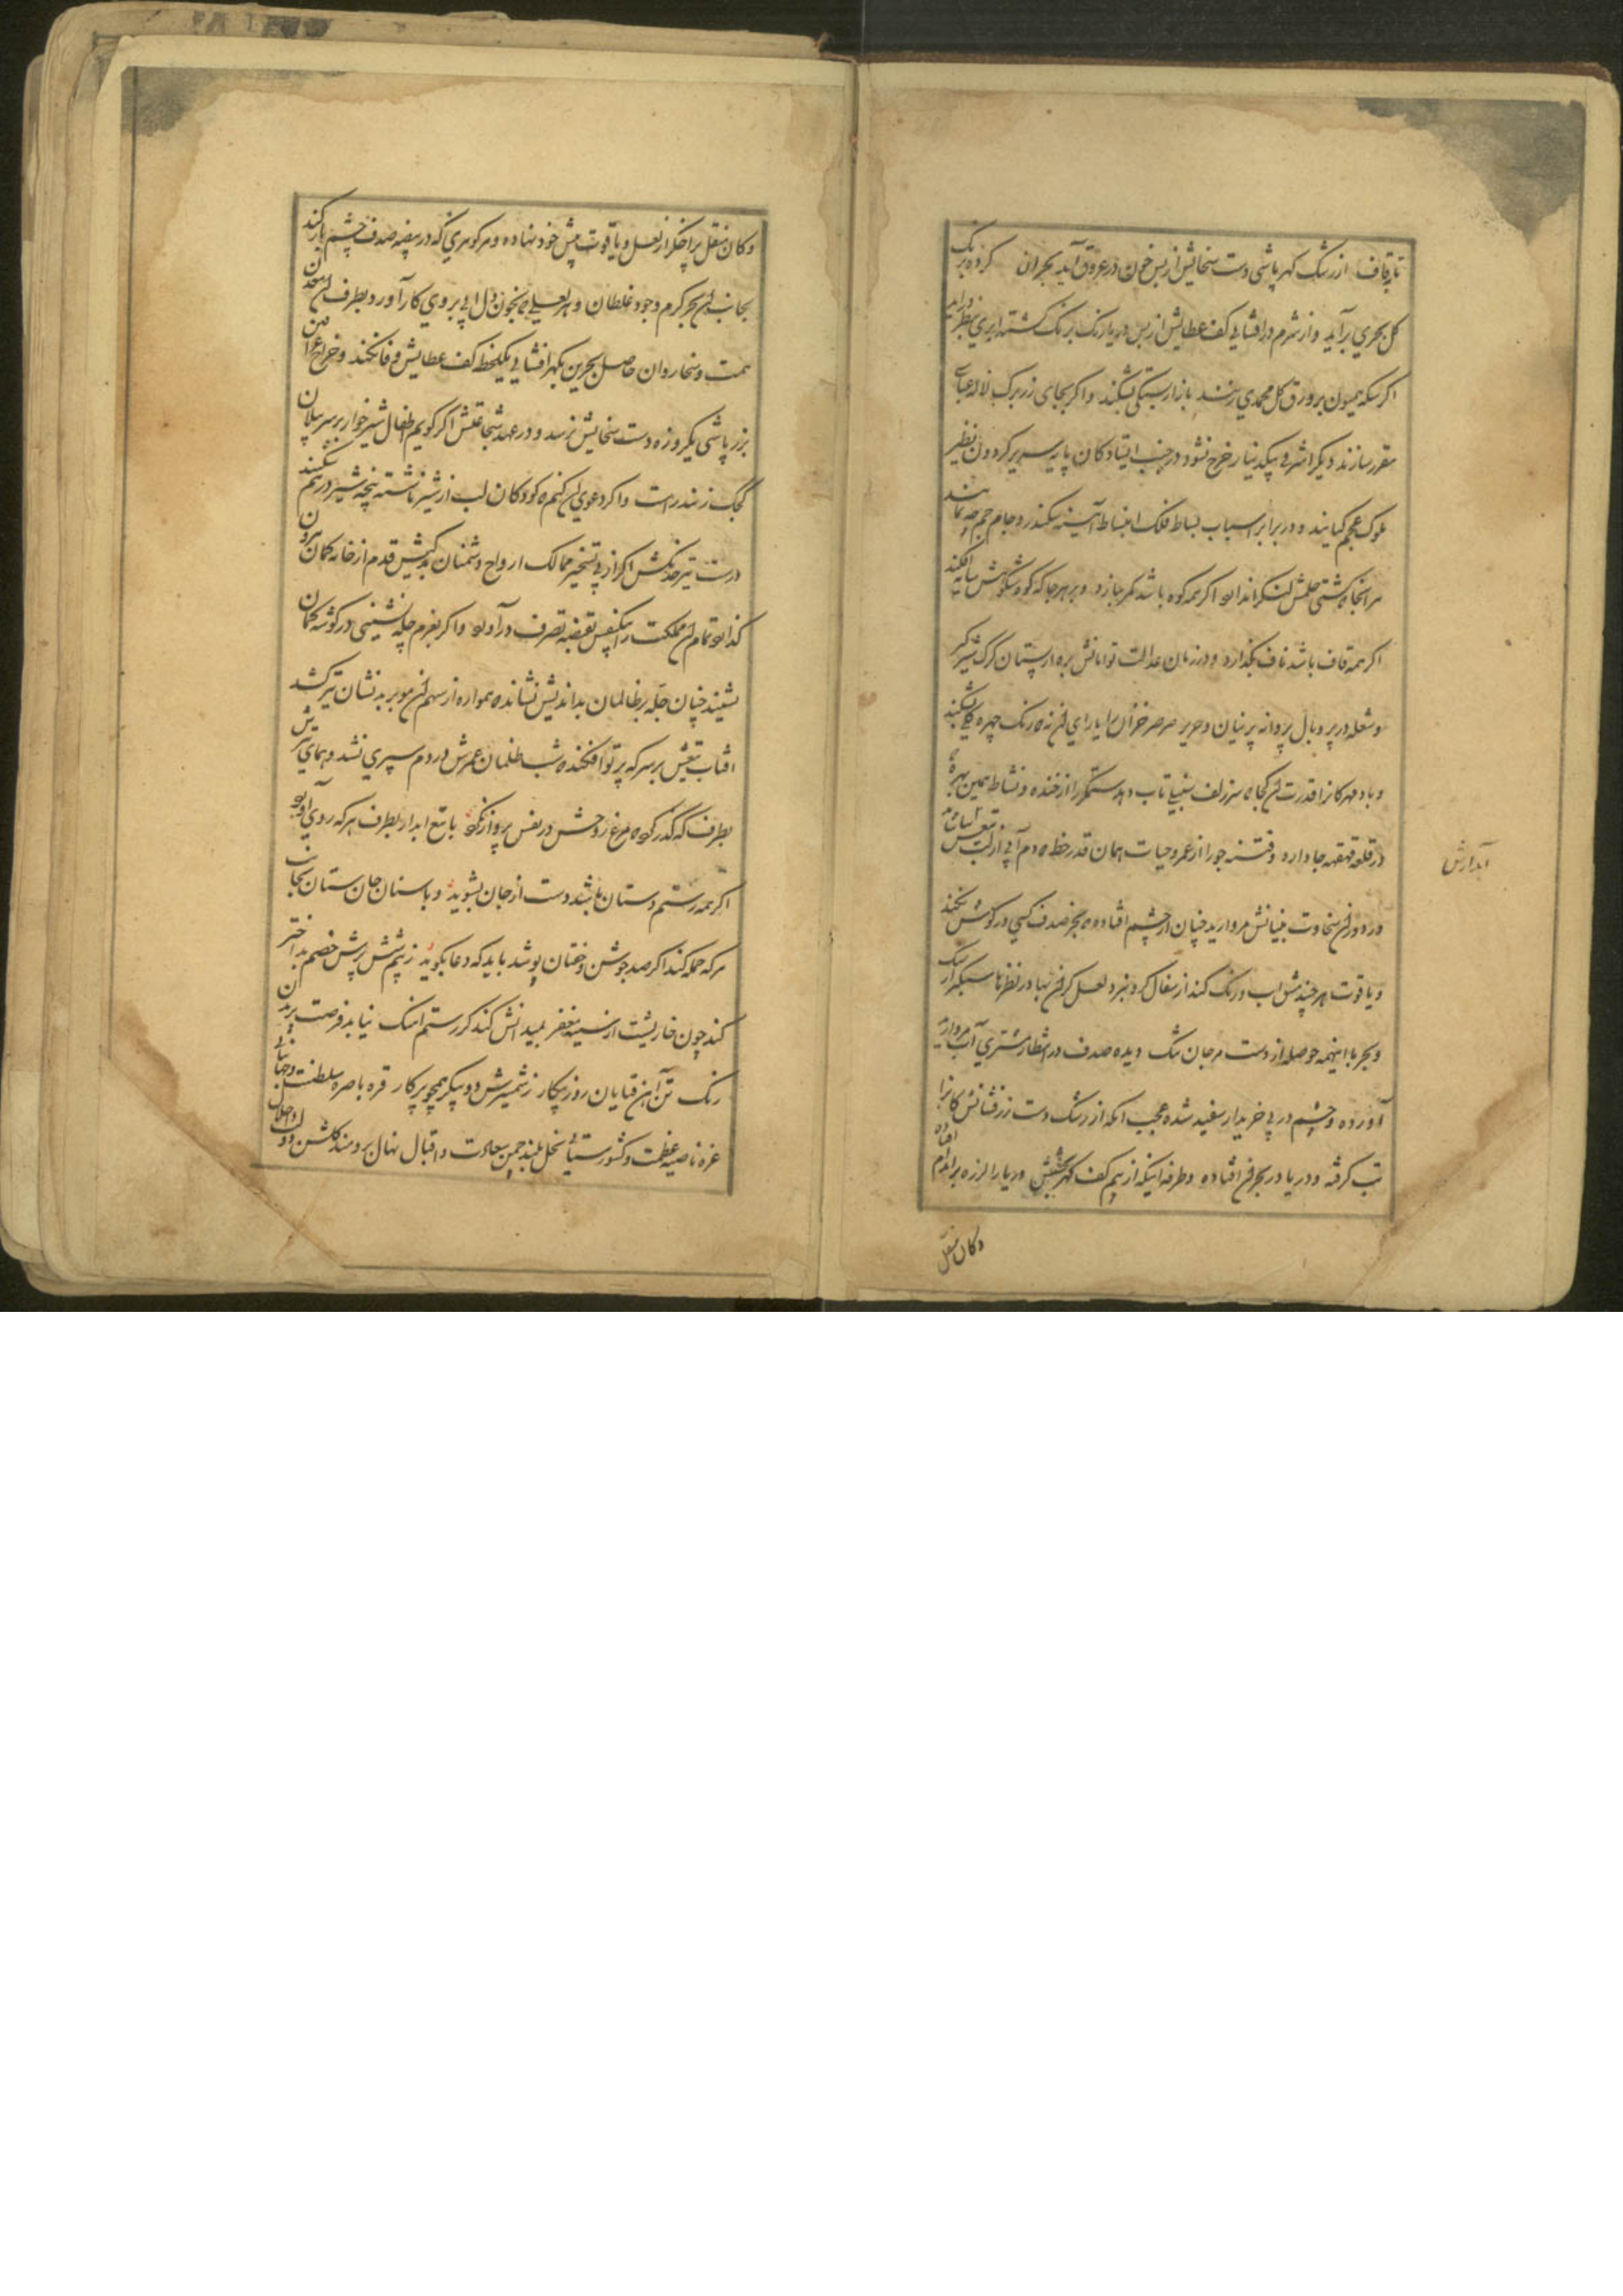 تا بقاف از رشک گهر پاشی دست سخایش از بس خون در عروق آید بحران کرده برنک
کل بحری برآید و از شرم در افشانی کف عطایش از بس دریا رنک برنک کشته ابری بنظر درآید
اکر سکه همیون بر ورق کل محمدی زنند بازار بستکی بشکند و اکر بجای زر برک لاله عباسی
مقرر سازند دیکر اشرفی بیکدینار خرج نشود در جنب ایستادکان پایه سریر کردون نظیر
ملوک عجم کیانند و در برابر اسباب بساط فلک انبساط آئینه سکندر و جام جم چه نماید
هر انجا که کشتی حلمش لنکر اندازد اکر همه کوه باشد کمر ببازد و بر هر جا که کوه شکوهش سایه افکند
اکر همه قاف باشد ناف بکذارد و در زمان عدالت توامانش بره از پستان کرک شیر کیر
و شعله در پر و بال پروانه پرنیان و حریر صرصر خزان را یارای آن نه که رنک چهره کلی بشکند
و باد مهرکان را قدرت آن کجا که سر زلف سنبلی تاب دهد ستمکر را از خنده و نشاط همین بهره که
در قلعه قهقهه جا دارد و فتنه جو را از عمر و حیات همان قدر حظ که دم آبی از لب تیغش آبدارش
در دوران سخاوت بنیانش مروارید چنان از چشم افتاده که بجز صدف کسی در کوش نکند
و یاقوت هر چند مشق اب و رنک کند از سفال کرو نبرد لعل کران بها در نظرها سبکتر از سنک
و بحر با اینهمه حوصله از دست مرجان تنک دیده صدف در انتظار مشتری آب مروارید
آورده و چشم در پی خریدار سفید شده عجب انکه از رشک دست زرفشانش کان را
تب کرفته و دریا در بحران افتاده و طرفه اینکه از بیم کف کهربخشش دریا را لرزه بر اندام افتاده
وکان منقل
آبدارش
وکان منقل پر اخکر از لعل و یاقوت پیش خود نهاده و هر کوهری که در بیضه صدف چشم باز کند
بجانب آن بحر کرم وجود غلطان و هر لعلی که بخون دل آبی بر روی کار آورد بطرف آن معدن
همت و سخا روان حاصل بحرین بکهر افشانی یکلحظه کف عطایش وفا نکند و خراج عراقین
بزر پاشی یکروزه دست سخایش نرسد و در عهد شجاعتش اکر کویم اطفال شیرخوار بر سر پیلان
کجک زنند راست و اکر دعوی آن کنم که کودکان لب از شیر ناشسته پنجه شیر در هم شکنند
درست تیر خدنکش اکر از پی تسخیر ممالک ارواح دشمنان بدکیش قدم از خانه کمان بیرون
کذارد تمام آن مملکت را بیکنفس بقبضه تصرف درآورد و اکر بعزم چله نشینی در کوشه کمان
نشیند چنان چله بر ظالمان بداندیش نشانده همواره از سهم آن مو بر بدنشان تیر کشد
افتاب تیغش بر سر که پرتو افکنده شب ظلمان عمرش در دم سپری نشد و همای تیرش
بطرف که کذر کرد که مرغ روحش در نفس پرواز نکرد با تیغ ابدار بطرف هر که روی آورد
اکر همه رستم دستان باشد دست از جان بشوید و با سنان جان ستان بجانب
هر که حمله کند اکر صد جوشن و خفتان پوشد باید که دعا بکوید ز بیم شش پرش خصم بداختر
کند چون خارپشت از سینه مغفر بمیدانش کند کر رستم اهنک نیابد فرصت پریدن
رنک تن آهن قبایان روز پیکار ز شمشیرش دو پیکر همچو پرکار قره باصره سلطنت و جهانبانی
غره ناصیه عظمت و کشورستانی نخل بلند چمن سعادت و اقبال نهال برومند کلشن دولت و جلال